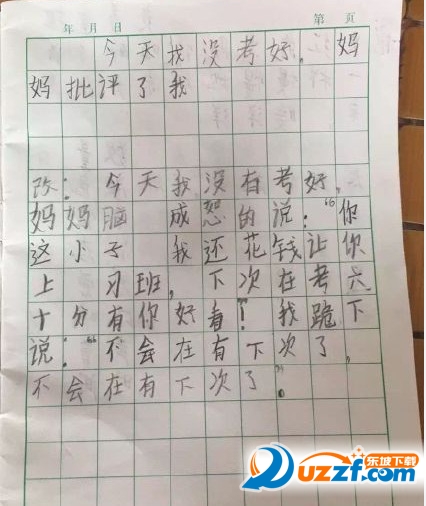 年 月 日 第 页
今天我没考好。妈
妈批评了我
改:今天我没有考好,
妈妈脑 成怒的说:“你
这小子 我还花钱让你
上 习班,下次在考六
十分有你好看!”我跪下
说:“不会在有下次了,
不会在有下次了”。
东坡下载
uzzf.com